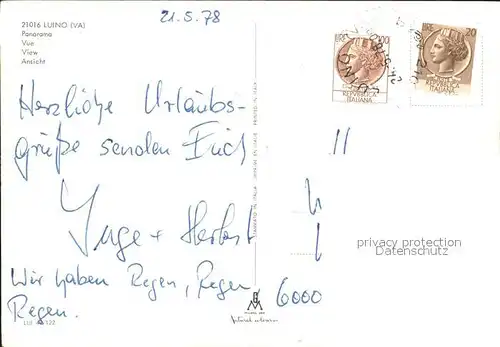 21.5.78
21016 LUINO (VA)
Panorama
Vue
View
Ansicht
LIRE 100
REPUBBLICA
ITALIANA
LIRE 20
REPUBBLICA
ITALIANA
LUINO
Herzliche Urlaubs-
grüße senden Euch
Inge + Herbert
Wir haben Regen, Regen,
Regen.
6000
privacy protection
Datenschutz